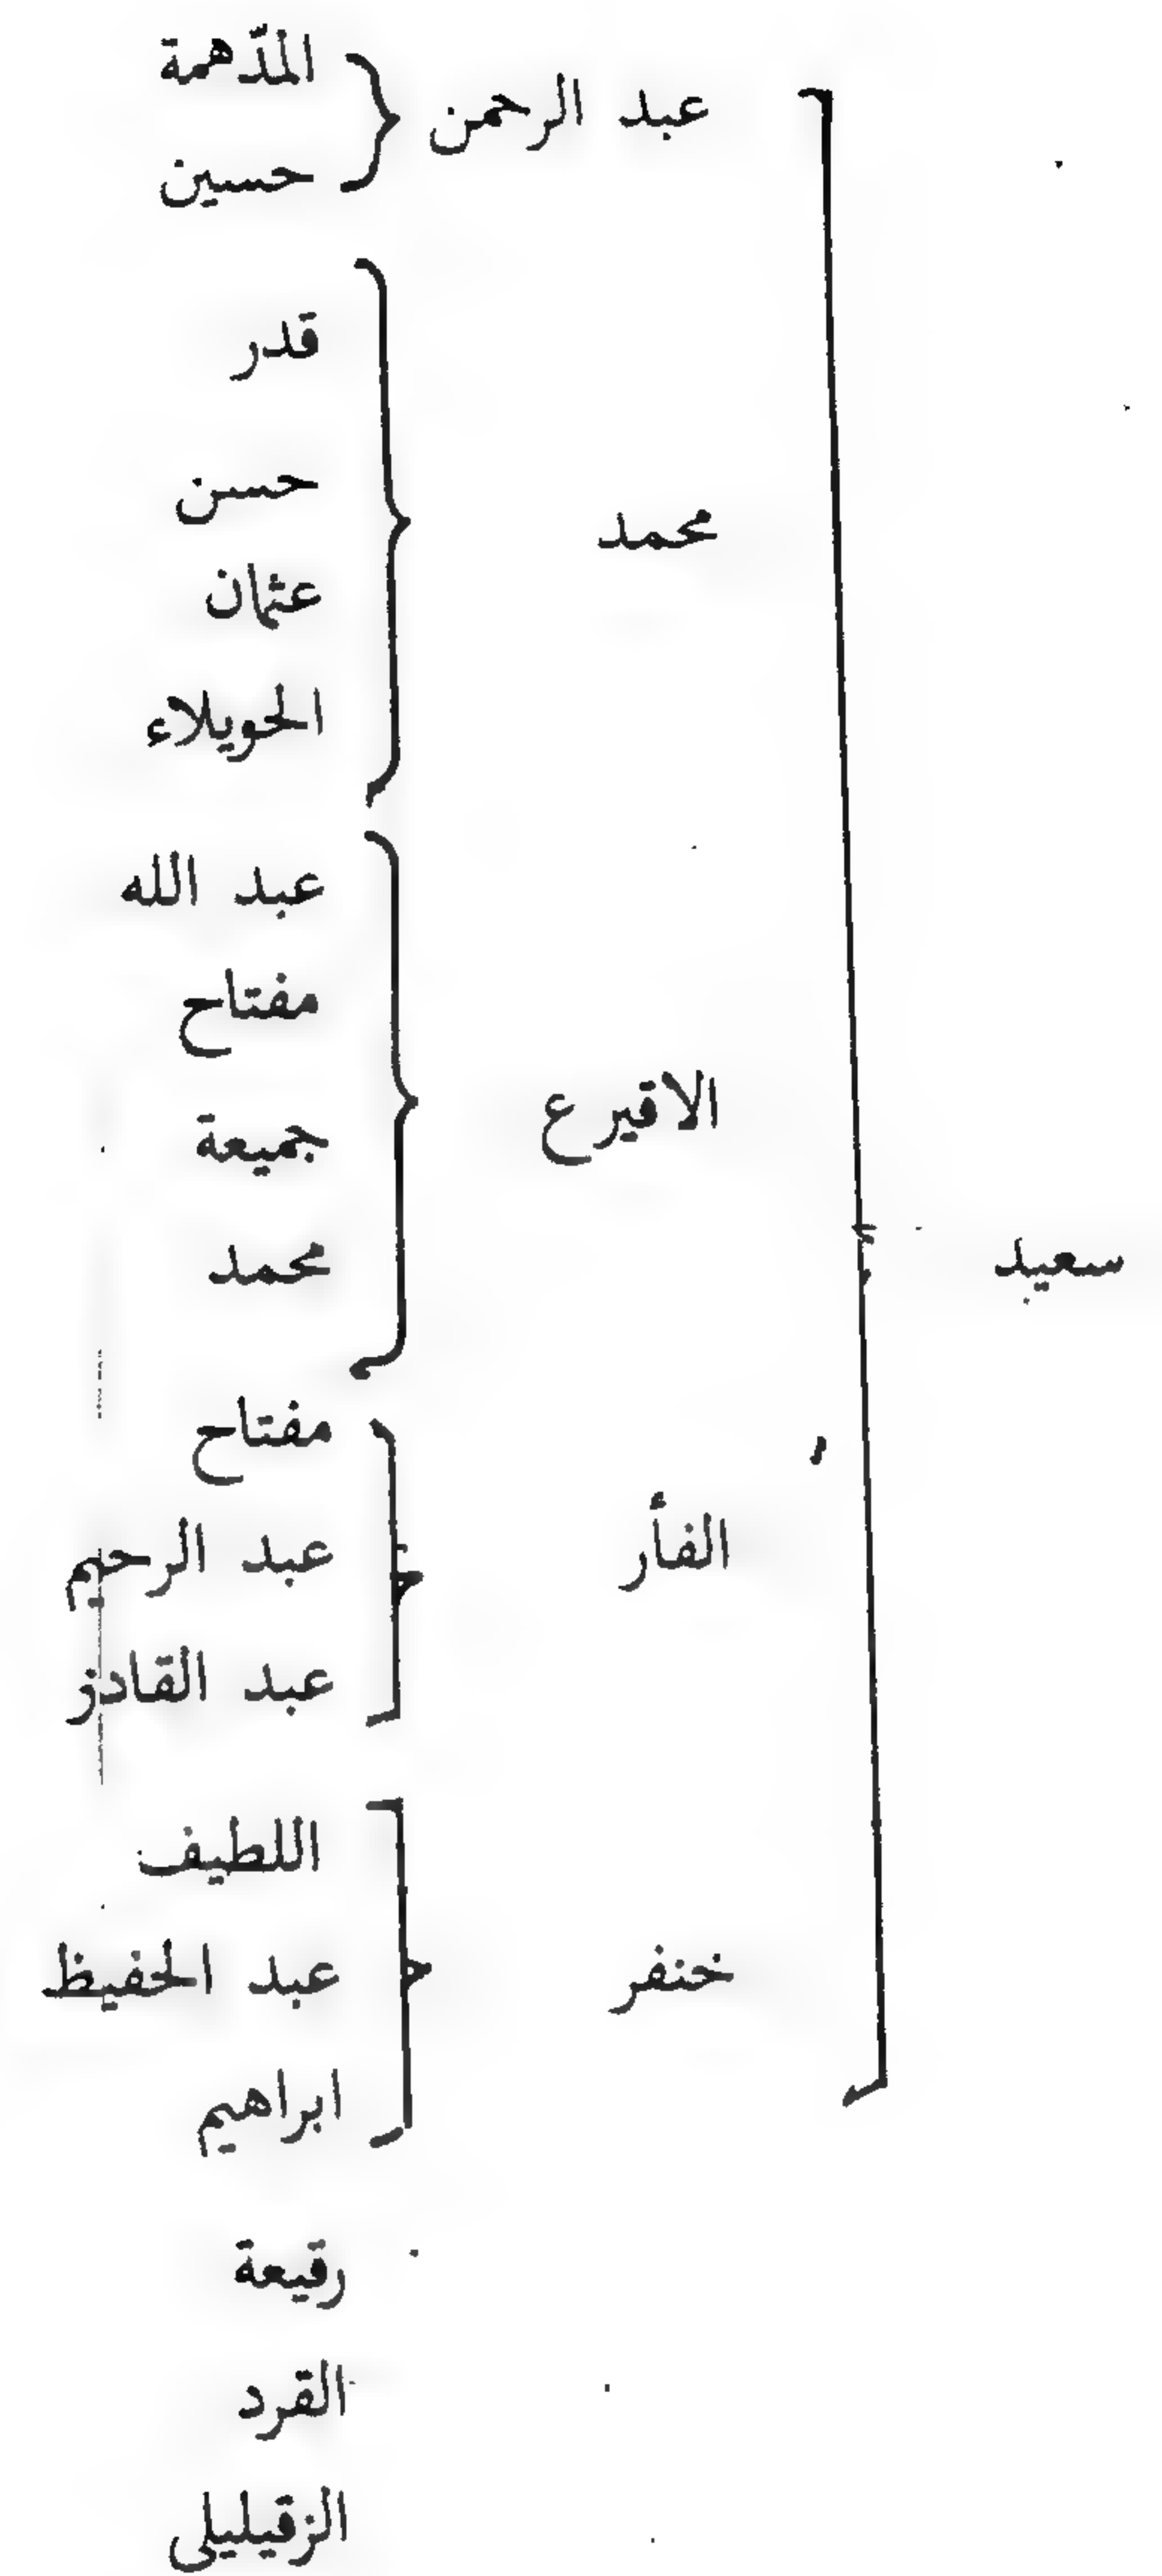 سعيد
عبد الرحمن
المدّهمة
حسين
محمد
قدر
حسن
عثمان
الحويلاء
الاقيرع
عبد الله
مفتاح
جميعة
محمد
الفأر
مفتاح
عبد الرحيم
عبد القادر
خنفر
اللطيف
عبد الحفيظ
ابراهيم
رقيعة
القرد
الزقيليلي